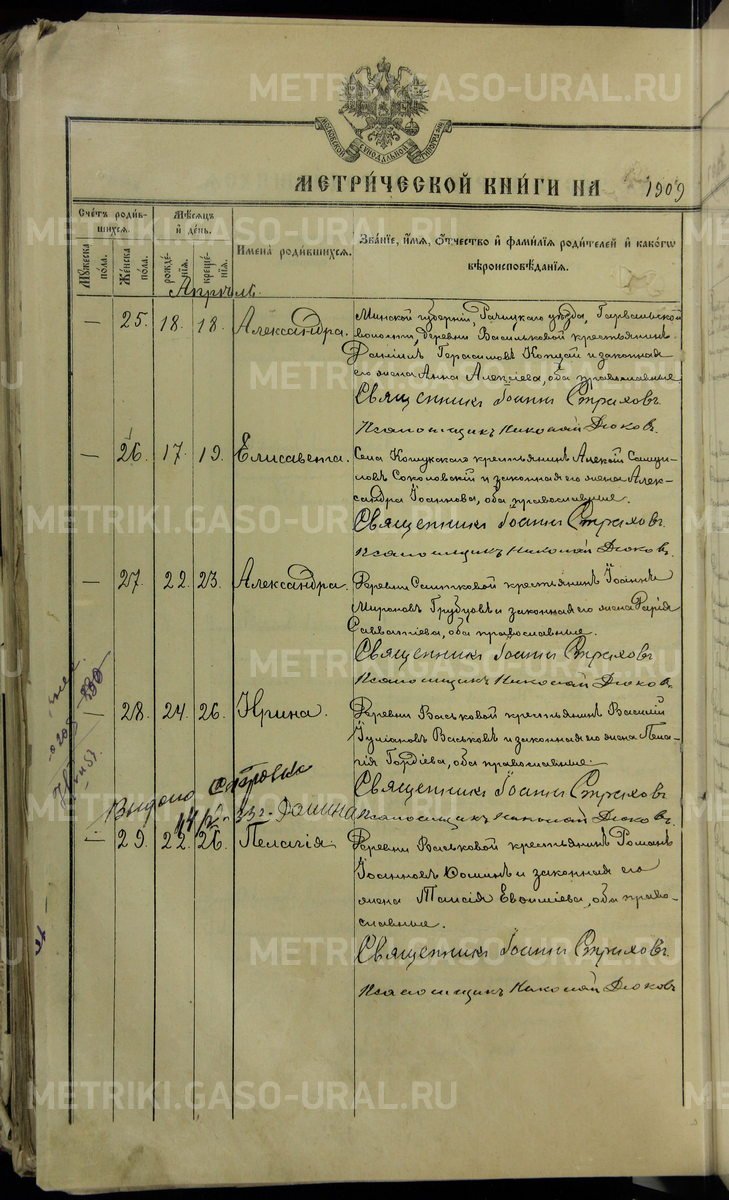 METRIKI.GASO-URAL.RU
МОСКОВСКОЙ СѴНОДАЛЬНОЙ ТИПОГРАФІИ
МЕТРИ́ЧЕСКОЙ КНИ́ГИ НА 1909
Счетъ роди́вшихся.
Мꙋжеска пола.
Же́нска пола.
Мѣсѧцъ и҆ день.
рожде́нїѧ.
креще́нїѧ.
Имена̀ роди́вшихсѧ.
Зва́нїе, и҆́мѧ, ѻ҆́тчество и҆ фами́лїѧ роди́телей и҆ како́гѡ вѣроисповѣ́данїѧ.
Апрѣль.
— 25. 18. 18. Александра.
Минской губерніи, Рѣчицкаго уѣзда,
волости, деревни Васильковой крестьянинъ
Даніилъ Герасимовъ и законная
его жена Анна Алексіева, оба православные
Священникъ Іоаннъ Страховъ
Псаломщикъ Николай Дюковъ.
— 26. 17. 19. Елисавета.
Села крестьянинъ Алексій Самуи-
ловъ Соколовскій и законная его жена Алек-
сандра Іоаннова, оба православные.
Священникъ Іоаннъ Страховъ
Псаломщикъ Николай Дюковъ.
— 27. 22. 23. Александра.
Деревни крестьянинъ Іоаннъ
Мироновъ и законная его жена Дарія
Савватіева, оба православные.
Священникъ Іоаннъ Страховъ
Псаломщикъ Николай Дюковъ.
— 28. 24. 26. Ирина.
Деревни Васьковой крестьянинъ Василій
Іуліановъ Васьковъ и законная его жена Пела-
гія Гордіева, оба православные.
Священникъ Іоаннъ Страховъ
Псаломщикъ Николай Дюковъ.
Выдано
— 29. 22. 26. Пелагія.
Деревни Васьковой крестьянинъ Романъ
Іоанновъ Ѳоминъ и законная его
жена Таисія Евѳиміева, оба право-
славные.
Священникъ Іоаннъ Страховъ
Псаломщикъ Николай Дюковъ